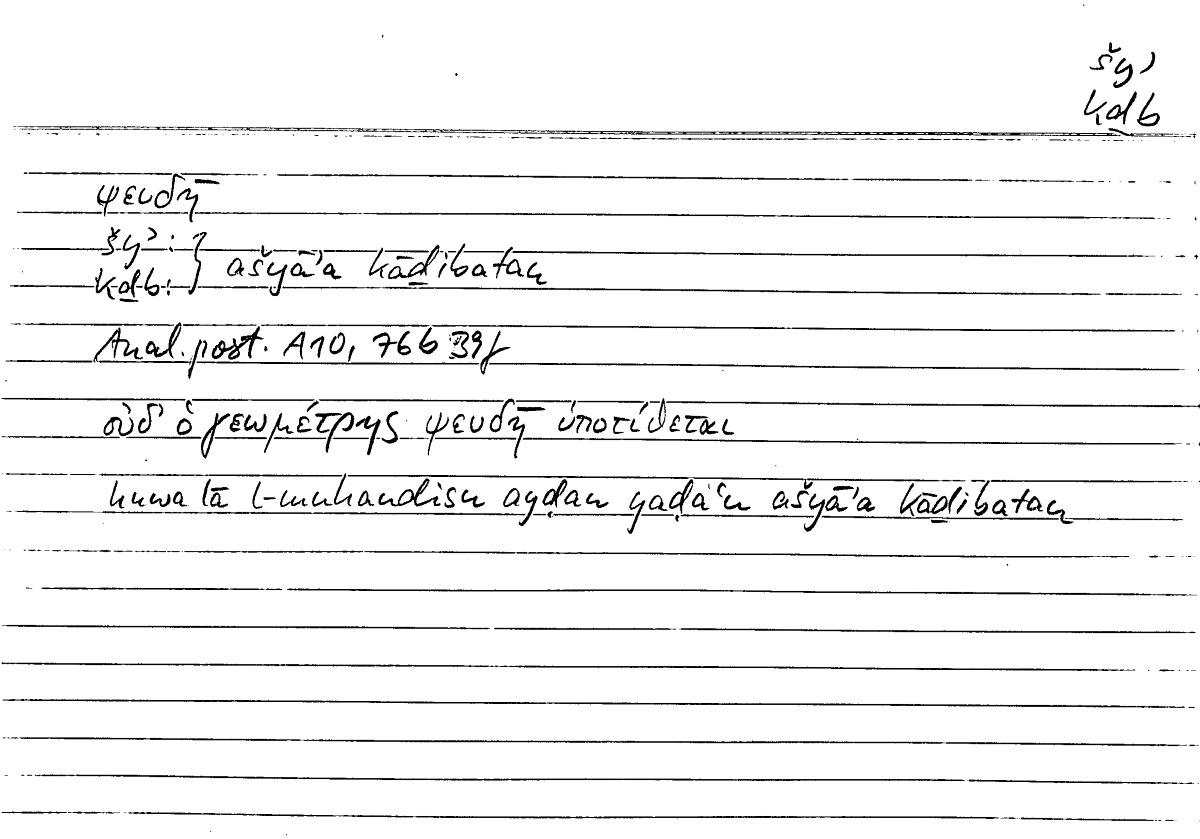 šyʾ
kḏb
ψευδῆ
šyʾ: }
kḏb: } ašyāʾa kāḏibatan
Anal. post. A10, 76b39f
οὐδ ὁ γεωμέτρης ψευδῆ ὑποτίθεται
huwa lā l-muhandisu ayḍan yaḍaʿu ašyāʾa kāḏibatan